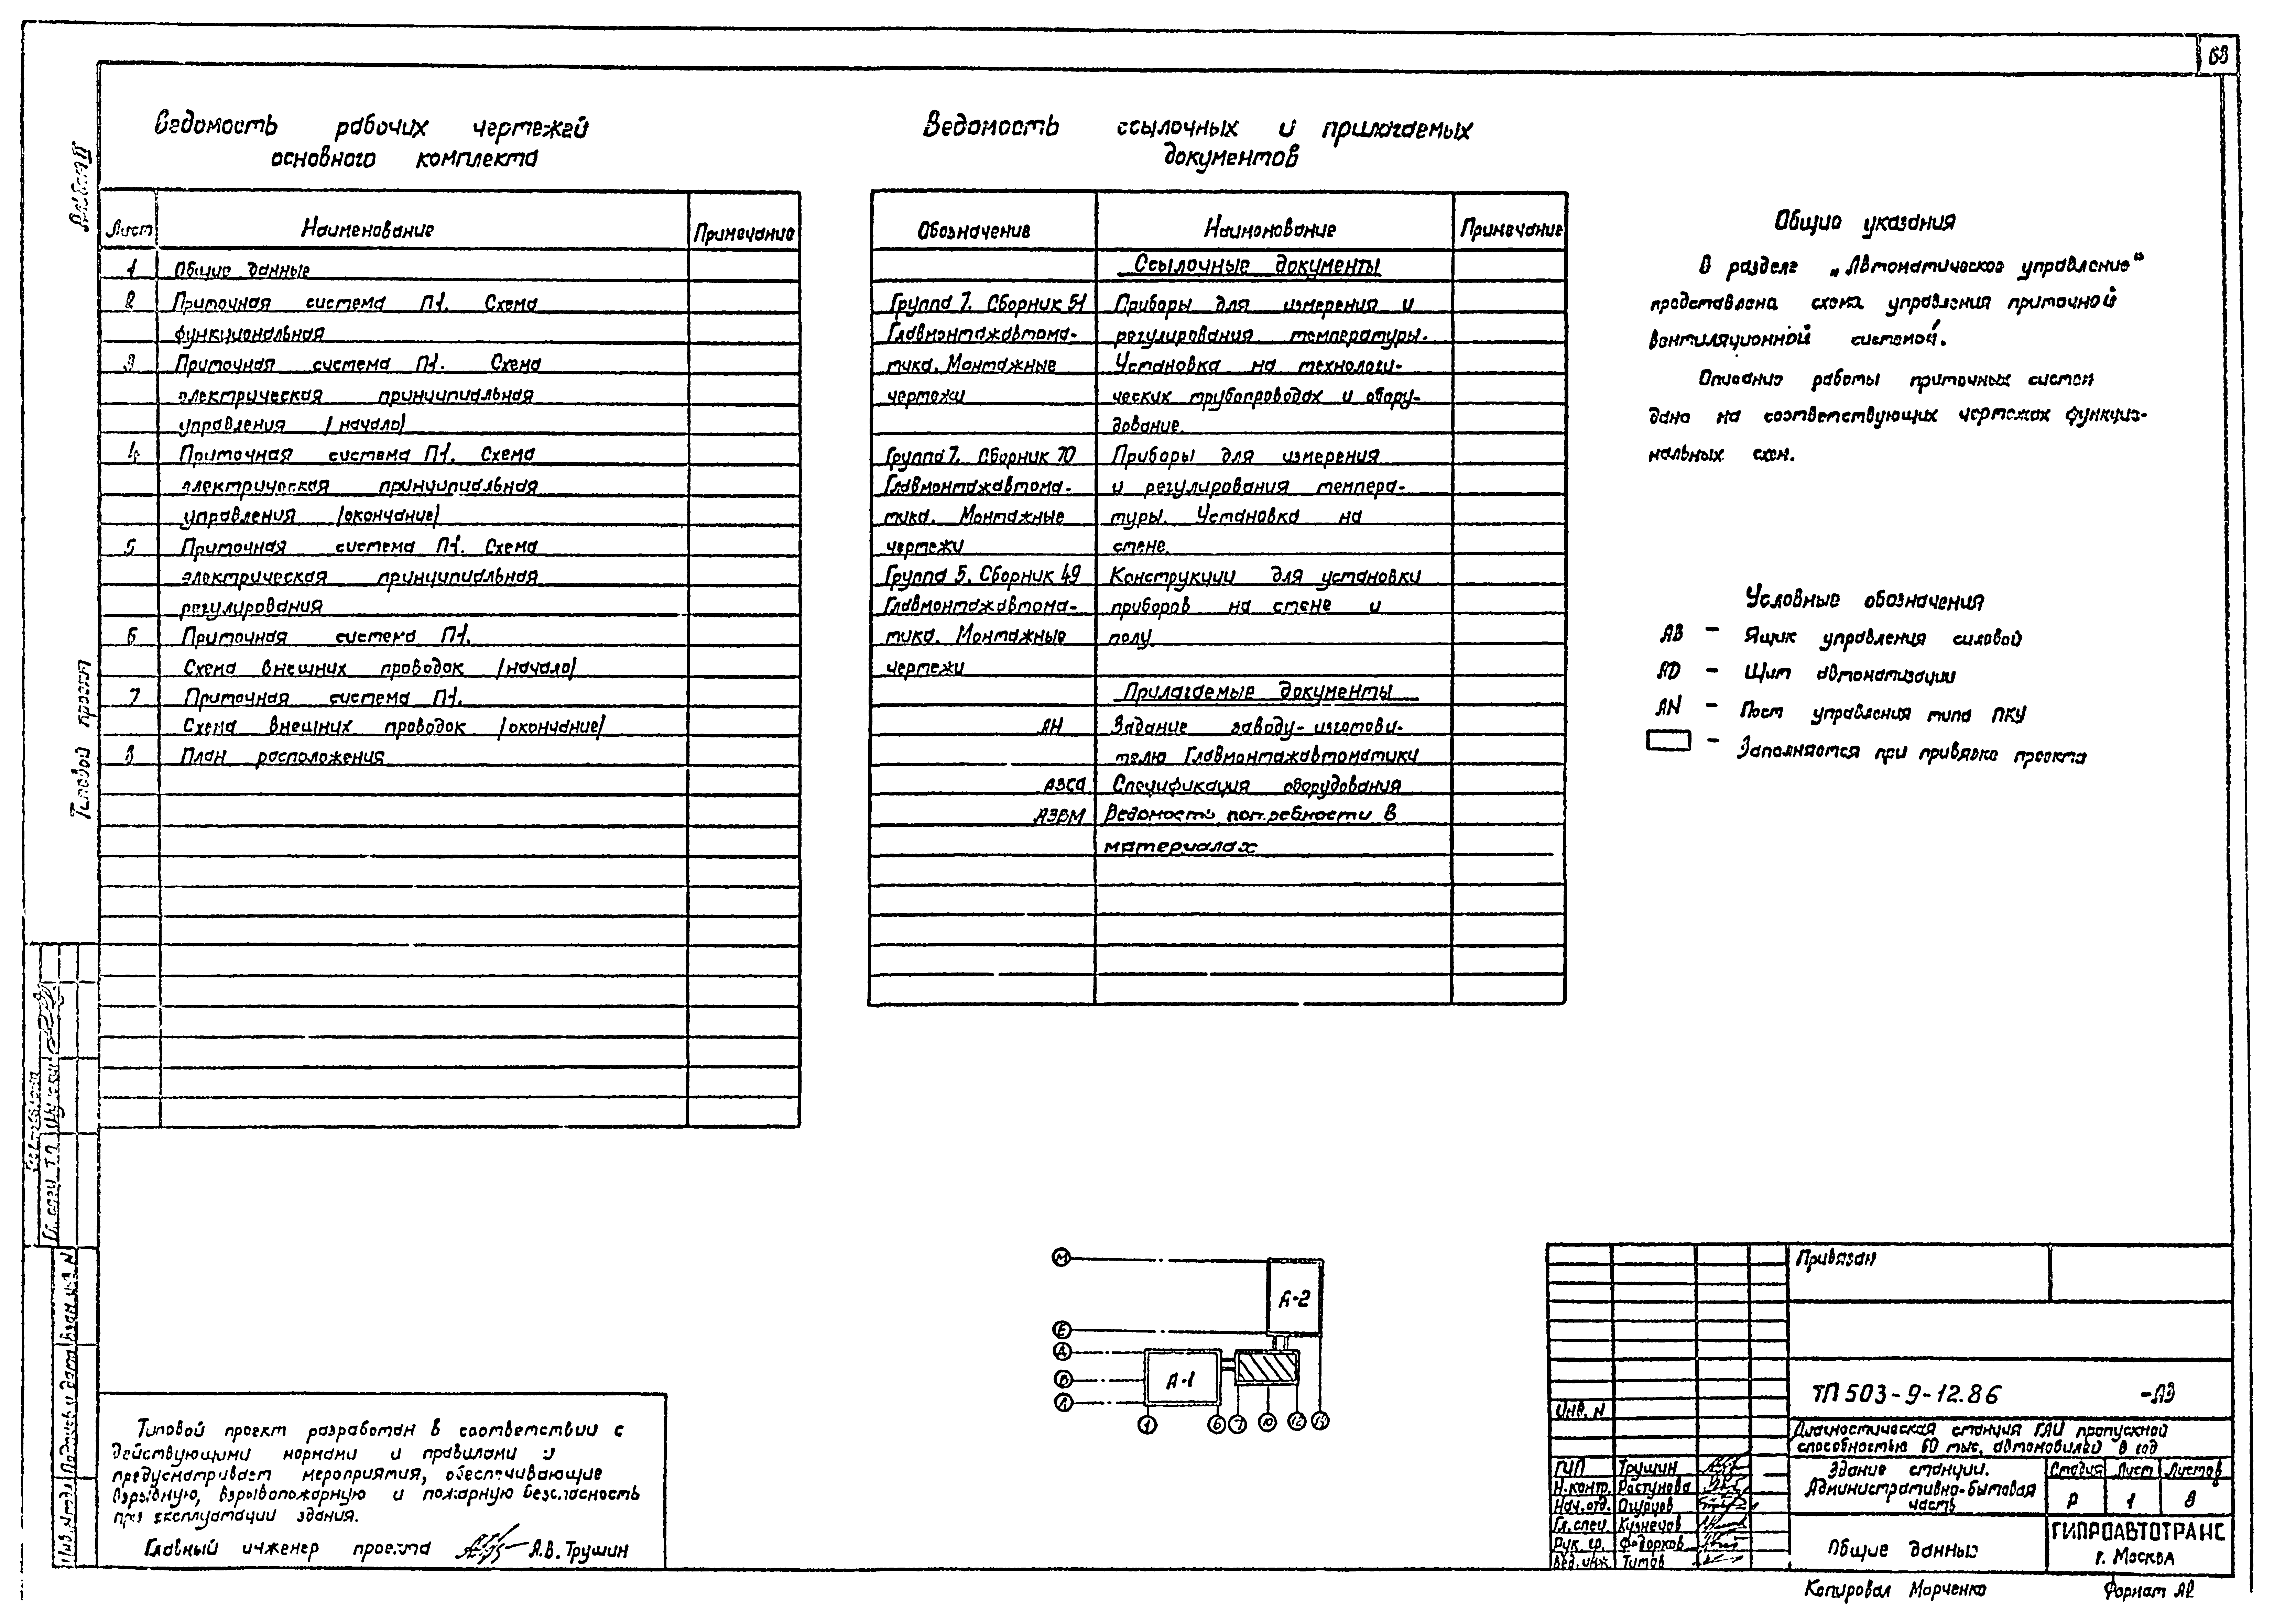 Ведомость рабочих чертежей
основного комплекта
Лист Наименование Примечание
1 Общие данные
2 Приточная система П-1. Схема
функциональная
3 Приточная система П-1. Схема
электрическая принципиальная
управления /начало/
4 Приточная система П-1. Схема
электрическая принципиальная
управления /окончание/
5 Приточная система П-1. Схема
электрическая принципиальная
регулирования
6 Приточная система П-1.
Схема внешних проводок /начало/
7 Приточная система П-1.
Схема внешних проводок /окончание/
8 План расположения
Ведомость ссылочных и прилагаемых
документов
Обозначение Наименование Примечание
Ссылочные документы
Группа 7. Сборник 51 Приборы для измерения и
Главмонтажавтома- регулирования температуры.
тика. Монтажные Установка на технологи-
чертежи ческих трубопроводах и обору-
дование.
Группа 7. Сборник 70 Приборы для измерения
Главмонтажавтома- и регулирования темпера-
тика. Монтажные туры. Установка на
чертежи стене.
Группа 5. Сборник 49 Конструкции для установки
Главмонтажавтома- приборов на стене и
тика. Монтажные полу
чертежи
Прилагаемые документы
АН Задание заводу-изготови-
телю Главмонтажавтоматики
АЗСО Спецификация оборудования
АЗВМ Ведомость потребности в
материалах
Общие указания
В разделе „Автоматическое управление"
представлена схема управления приточной
вентиляционной системой.
Описание работы приточных систем
дано на соответствующих чертежах функцио-
нальных схем.
Условные обозначения
АВ - Ящик управления силовой
АD - Щит автоматизации
АN - Пост управления типа ПКУ
- Заполняется при привязке проекта
Альбом II
Типовой проект
Гл. спец. ТП
Инв. N подл. Подпись и дата Взам. инв. N
Типовой проект разработан в соответствии с
действующими нормами и правилами и
предусматривает мероприятия, обеспечивающие
взрывную, взрывопожарную и пожарную безопасность
при эксплуатации здания.
Главный инженер проекта А.В. Трушин
М
Е
Д
В
А
А-2
А-1
1 6 7 10 12 14
Привязан
Инв. N
ТП 503-9-12.86 -АЗ
Диагностическая станция ГАИ пропускной
способностью 60 тыс. автомобилей в год
ГИП Трушин
Н. контр. Растунова
Нач. отд.
Гл. спец. Кузнецов
Рук. гр. Федорков
Вед. инж. Титов
Здание станции.
Административно-бытовая
часть
Стадия Лист Листов
Р 1 8
Общие данные
ГИПРОАВТОТРАНС
г. Москва
Копировал Марченко Формат А2